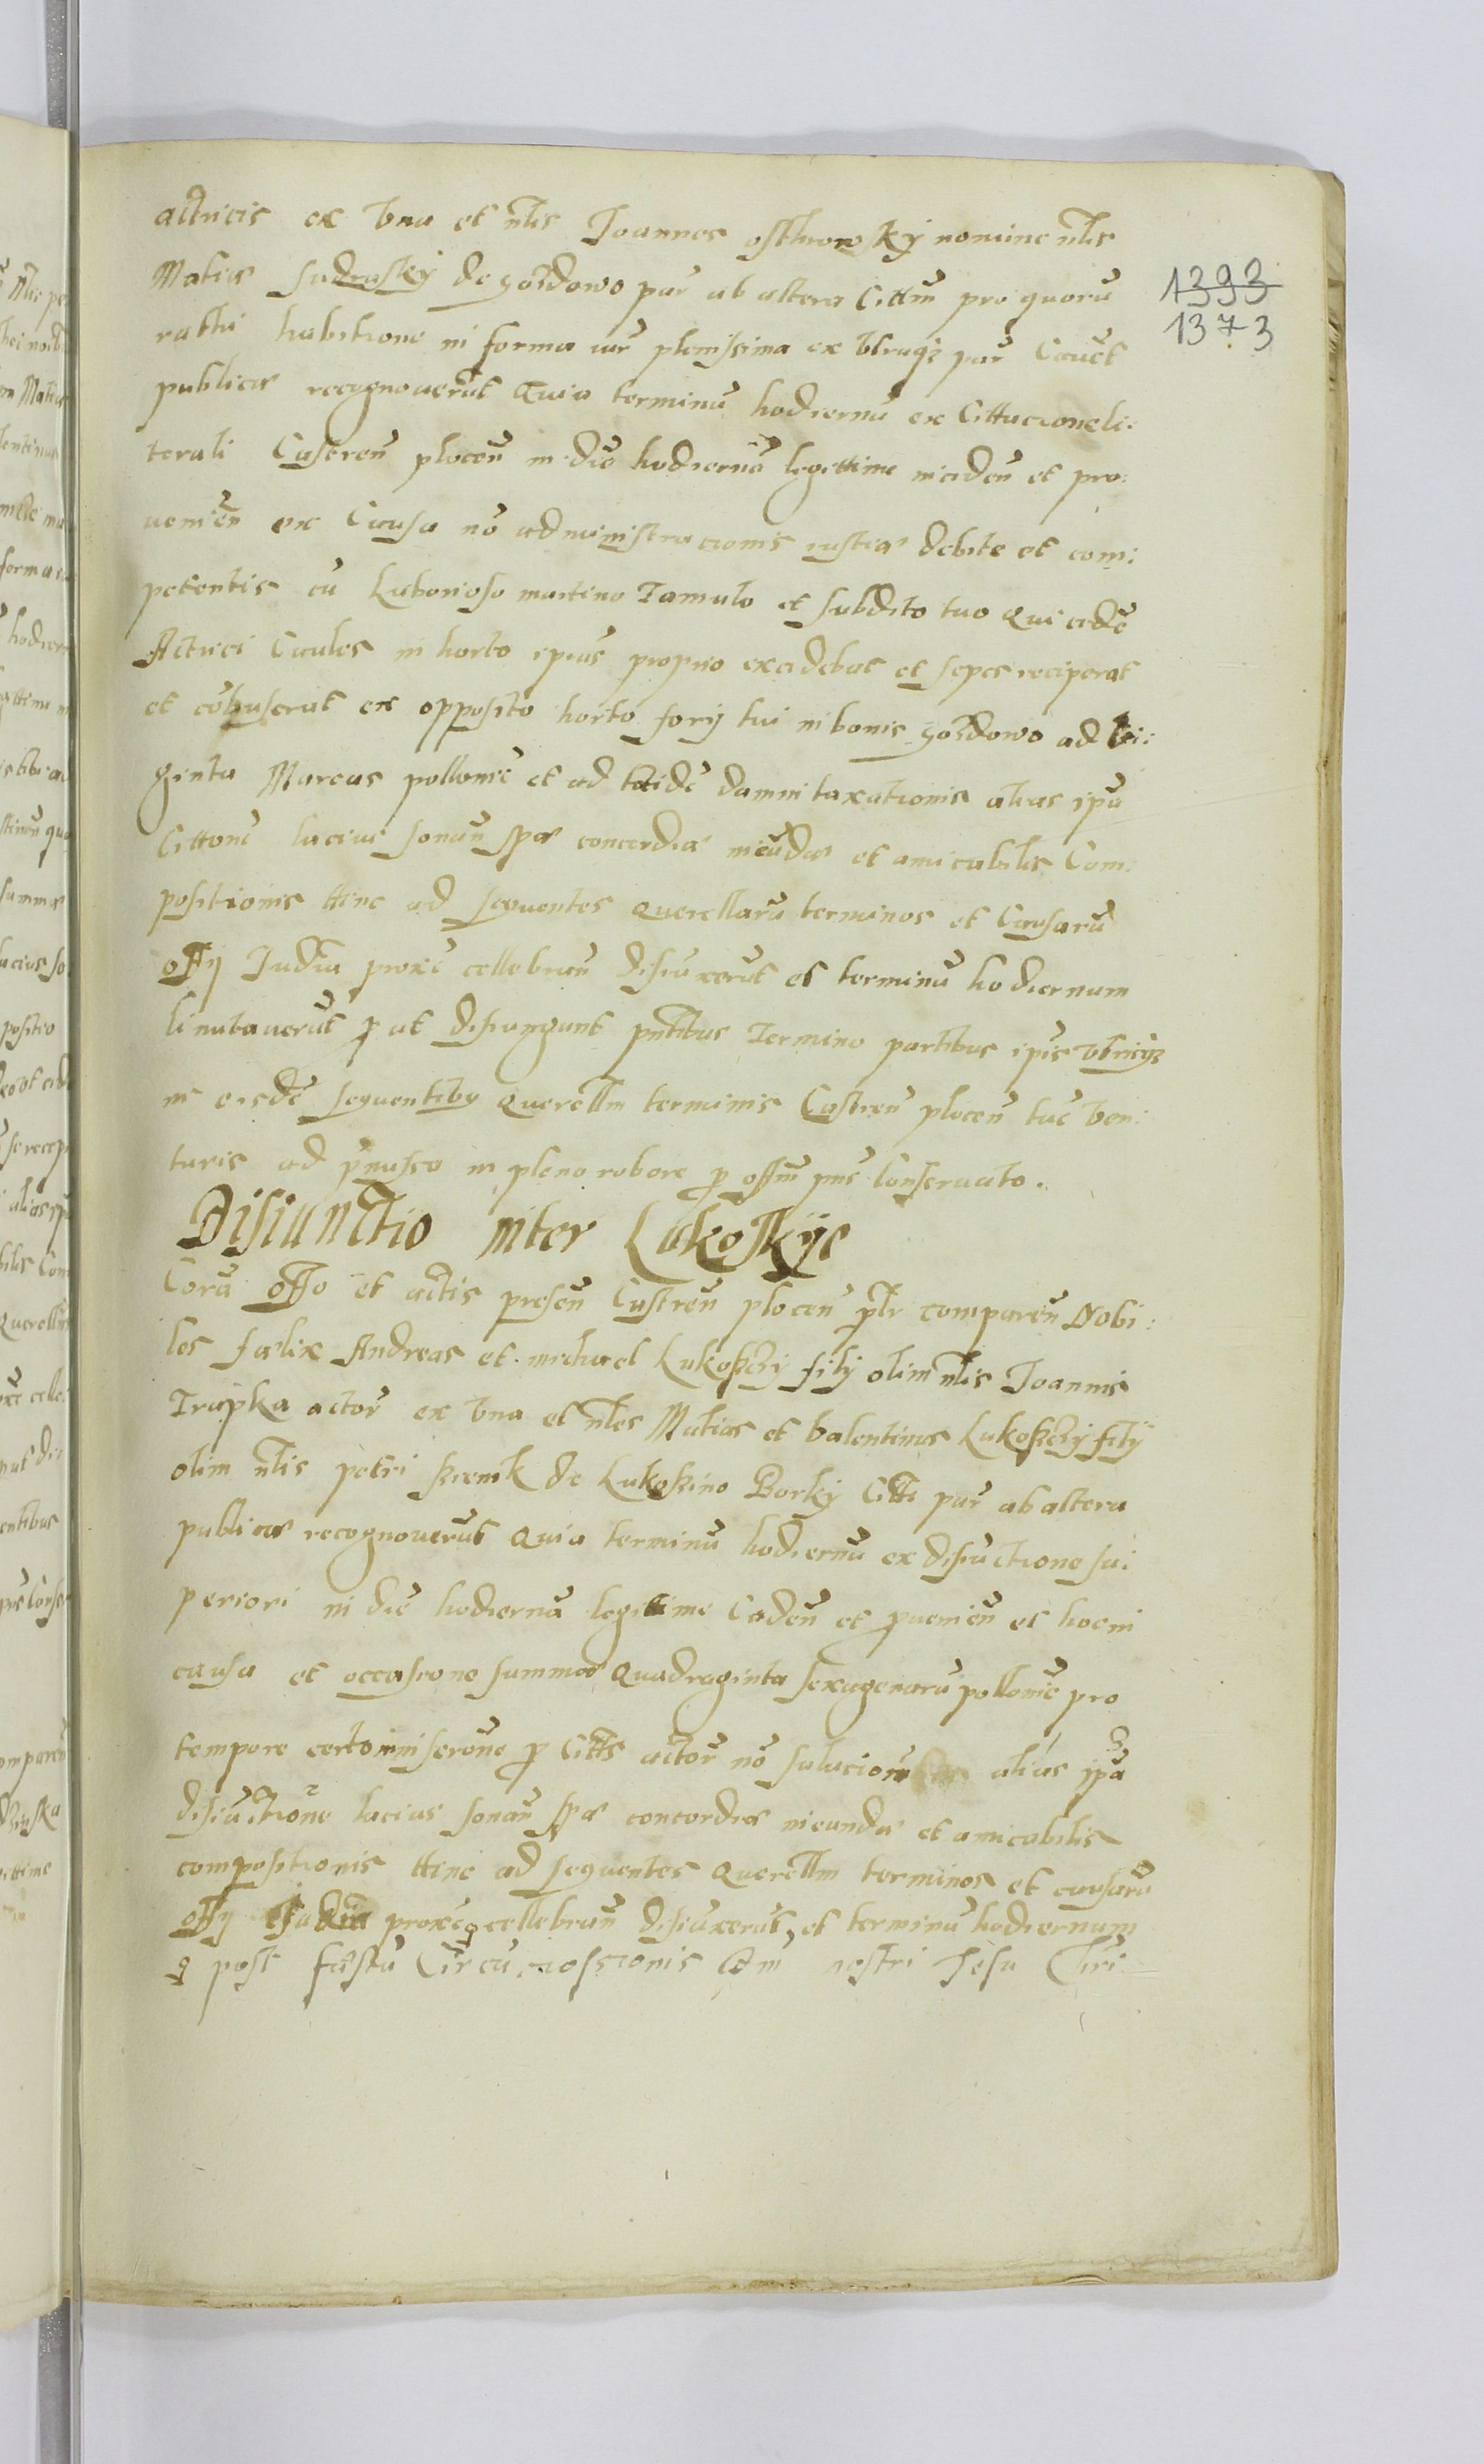 actricis ex vna et nlis Joannes osthrowsky nomine nlis
Matias Sudrasky de gozdowo par ab altera Cittm pro quorū
rathi habitione in forma iur plenissima ex vtraq3 par Cavet
publicæ recognouerūt Quia terminū hodiernū ex Cittacione li:
terali Castren plocen in die hodierna legittime inciden et pro:
uenien ex Causa nō administracionis iustiæ debite et com:
petentis cū Laborioso martino Famulo et subdito tuo Qui eidē
Actrici Caules in horto ipius proprio excidebat et sepes reciperat
et cōbuserat ex opposito horto sorÿ tui in bonis gozdowo ad vi:
ginta Marcas pollonic et ad tātidē damni taxationis alias ipa
Cittone lacius sonan spæ concordiæ ineūdæ et amicabilis Com:
positionis hinc ad sequentes Querellarū terminos et Causarū
offÿ Judia proxe cellebran disiūxerūt et terminū hodiernum
limitauerūt p ut disiungunt pntibus Termino partibus ipis vtrisq3
in eisdē sequentiby Querellm terminis Castren plocen tūc ven:
turis ad pmissa in pleno robore p offm pns Conseruato.
Disiunctio inter Lukoskÿe
Corā offo et actis presen Castren plocen plr comparen Nobi:
les fælix Andreas et michael Lukoszÿ filÿ olim nlis Joannis
Trapka actor ex vna et nles Matias et valentinus Lukoszÿ filÿ
olim nlis petri de Lukossino Borkÿ Citti par ab altera
publicæ recognouerūt Quia terminū hodiernū ex disiūctione su:
periori in die hodierna legittime Caden et puenien et hoc in
causa et occasione summæ Quadraginta sexagenarū pollonic pro
tempore certo inniserone p Citts actor nō solucion alias ipa
disiūctione lacius sonan spæ concordiæ ineundæ et amicabilis
compositionis hinc ad sequentes Querellm terminos et causarū
offÿ proxe cellebran disiūxerūt, et terminū hodiernum
post fæstū Circūcissionis Dni nostri Jesu Chri
1393
1373